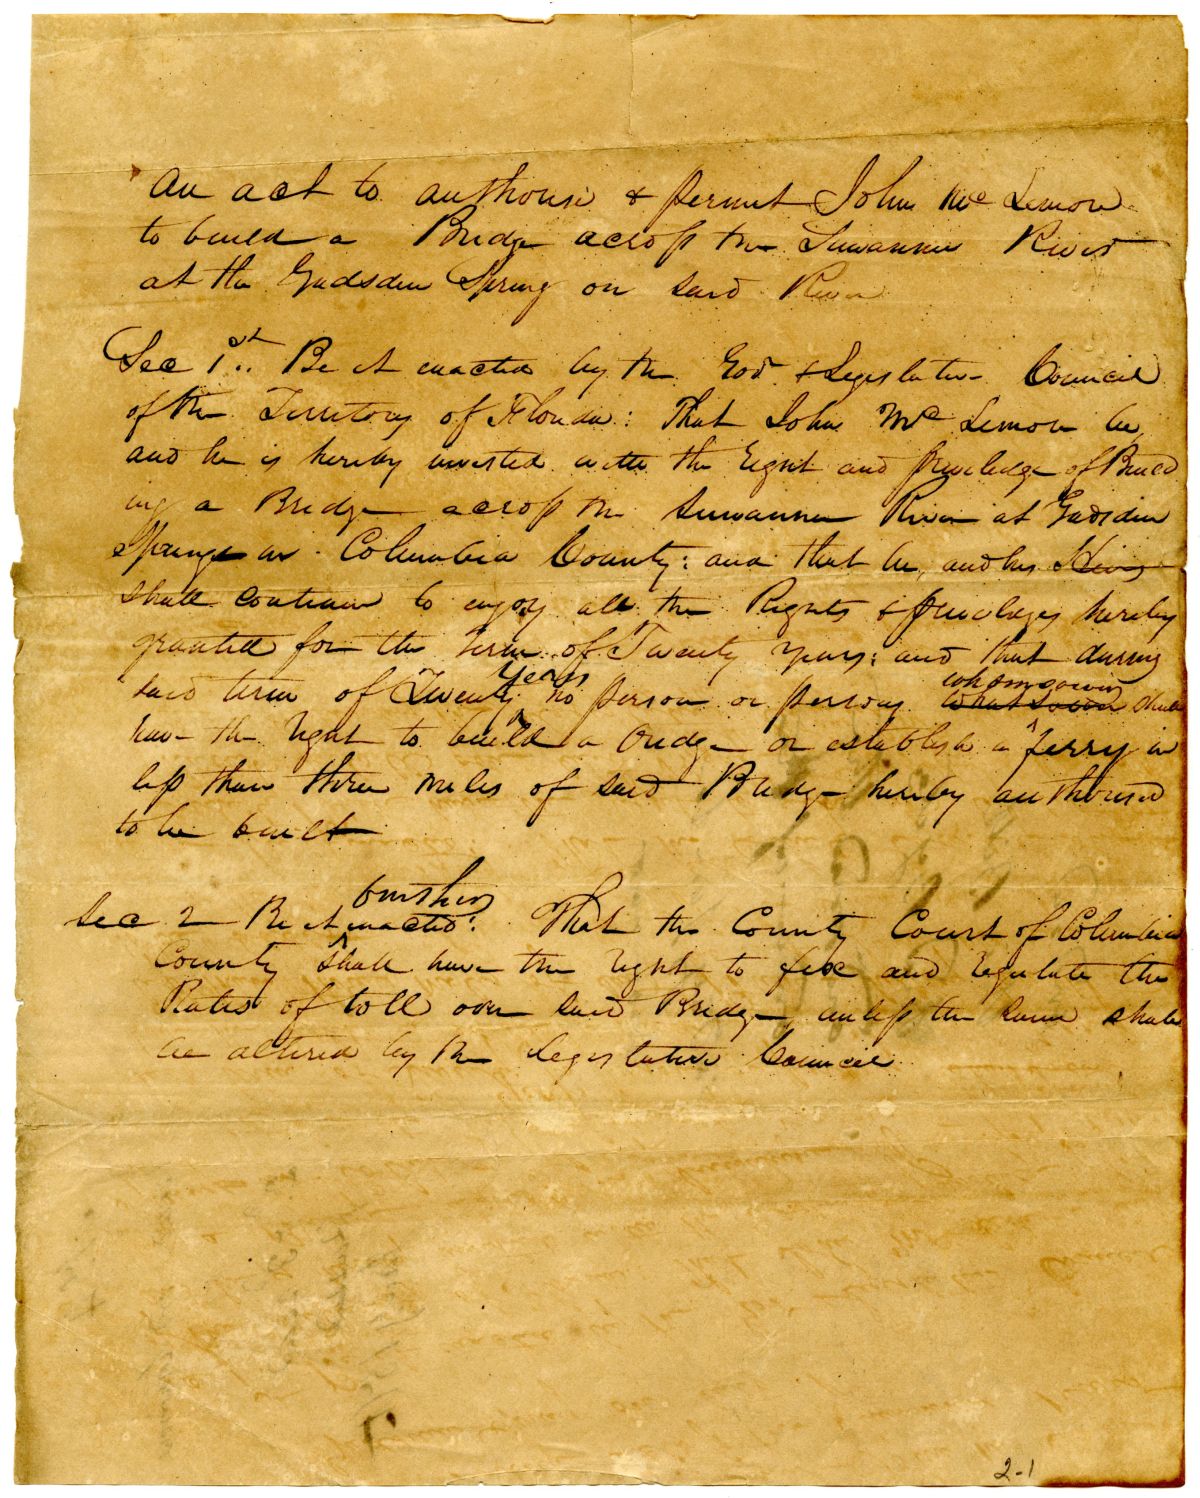 An act to authorise & permit John Mc Lemore
to build a Bridge across the Suwannee River
at the Gadsden Spring on said River
Sec 1st. Be it enacted by the Gov. & Legislative Council
of the Territory of Florida: That John Mc Lemore be,
and he is hereby invested with the right and priviledge of Build
ing a Bridge across the Suwannee River at Gadsden
Springs in Columbia County: and that he, and his Heirs
shall continue to enjoy all the Rights & priviledges hereby
granted for the term of Twenty years: and that during
years whomsoever
said term of Twenty no person or persons whatsoever shall
have the right to build a Bridge or establish a ferry in
less than three miles of said Bridge hereby authorised
to be built
further
Sec 2 Be it enacted: That the County Court of Columbia
County shall have the right to fix and regulate the
Rates of toll over said Bridge, unless the same shall
be altered by the Legislative Council
2-1